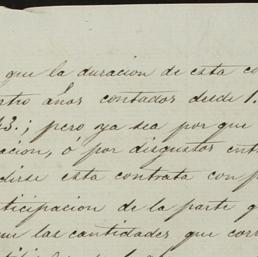 que la duracion de esta co
atro Años contados desde 1.
43.; pero ya sea por que
acion, ó por disgustos ent
dirse esta contrata con p
ticipacion de la parte q
las cantidades que corr